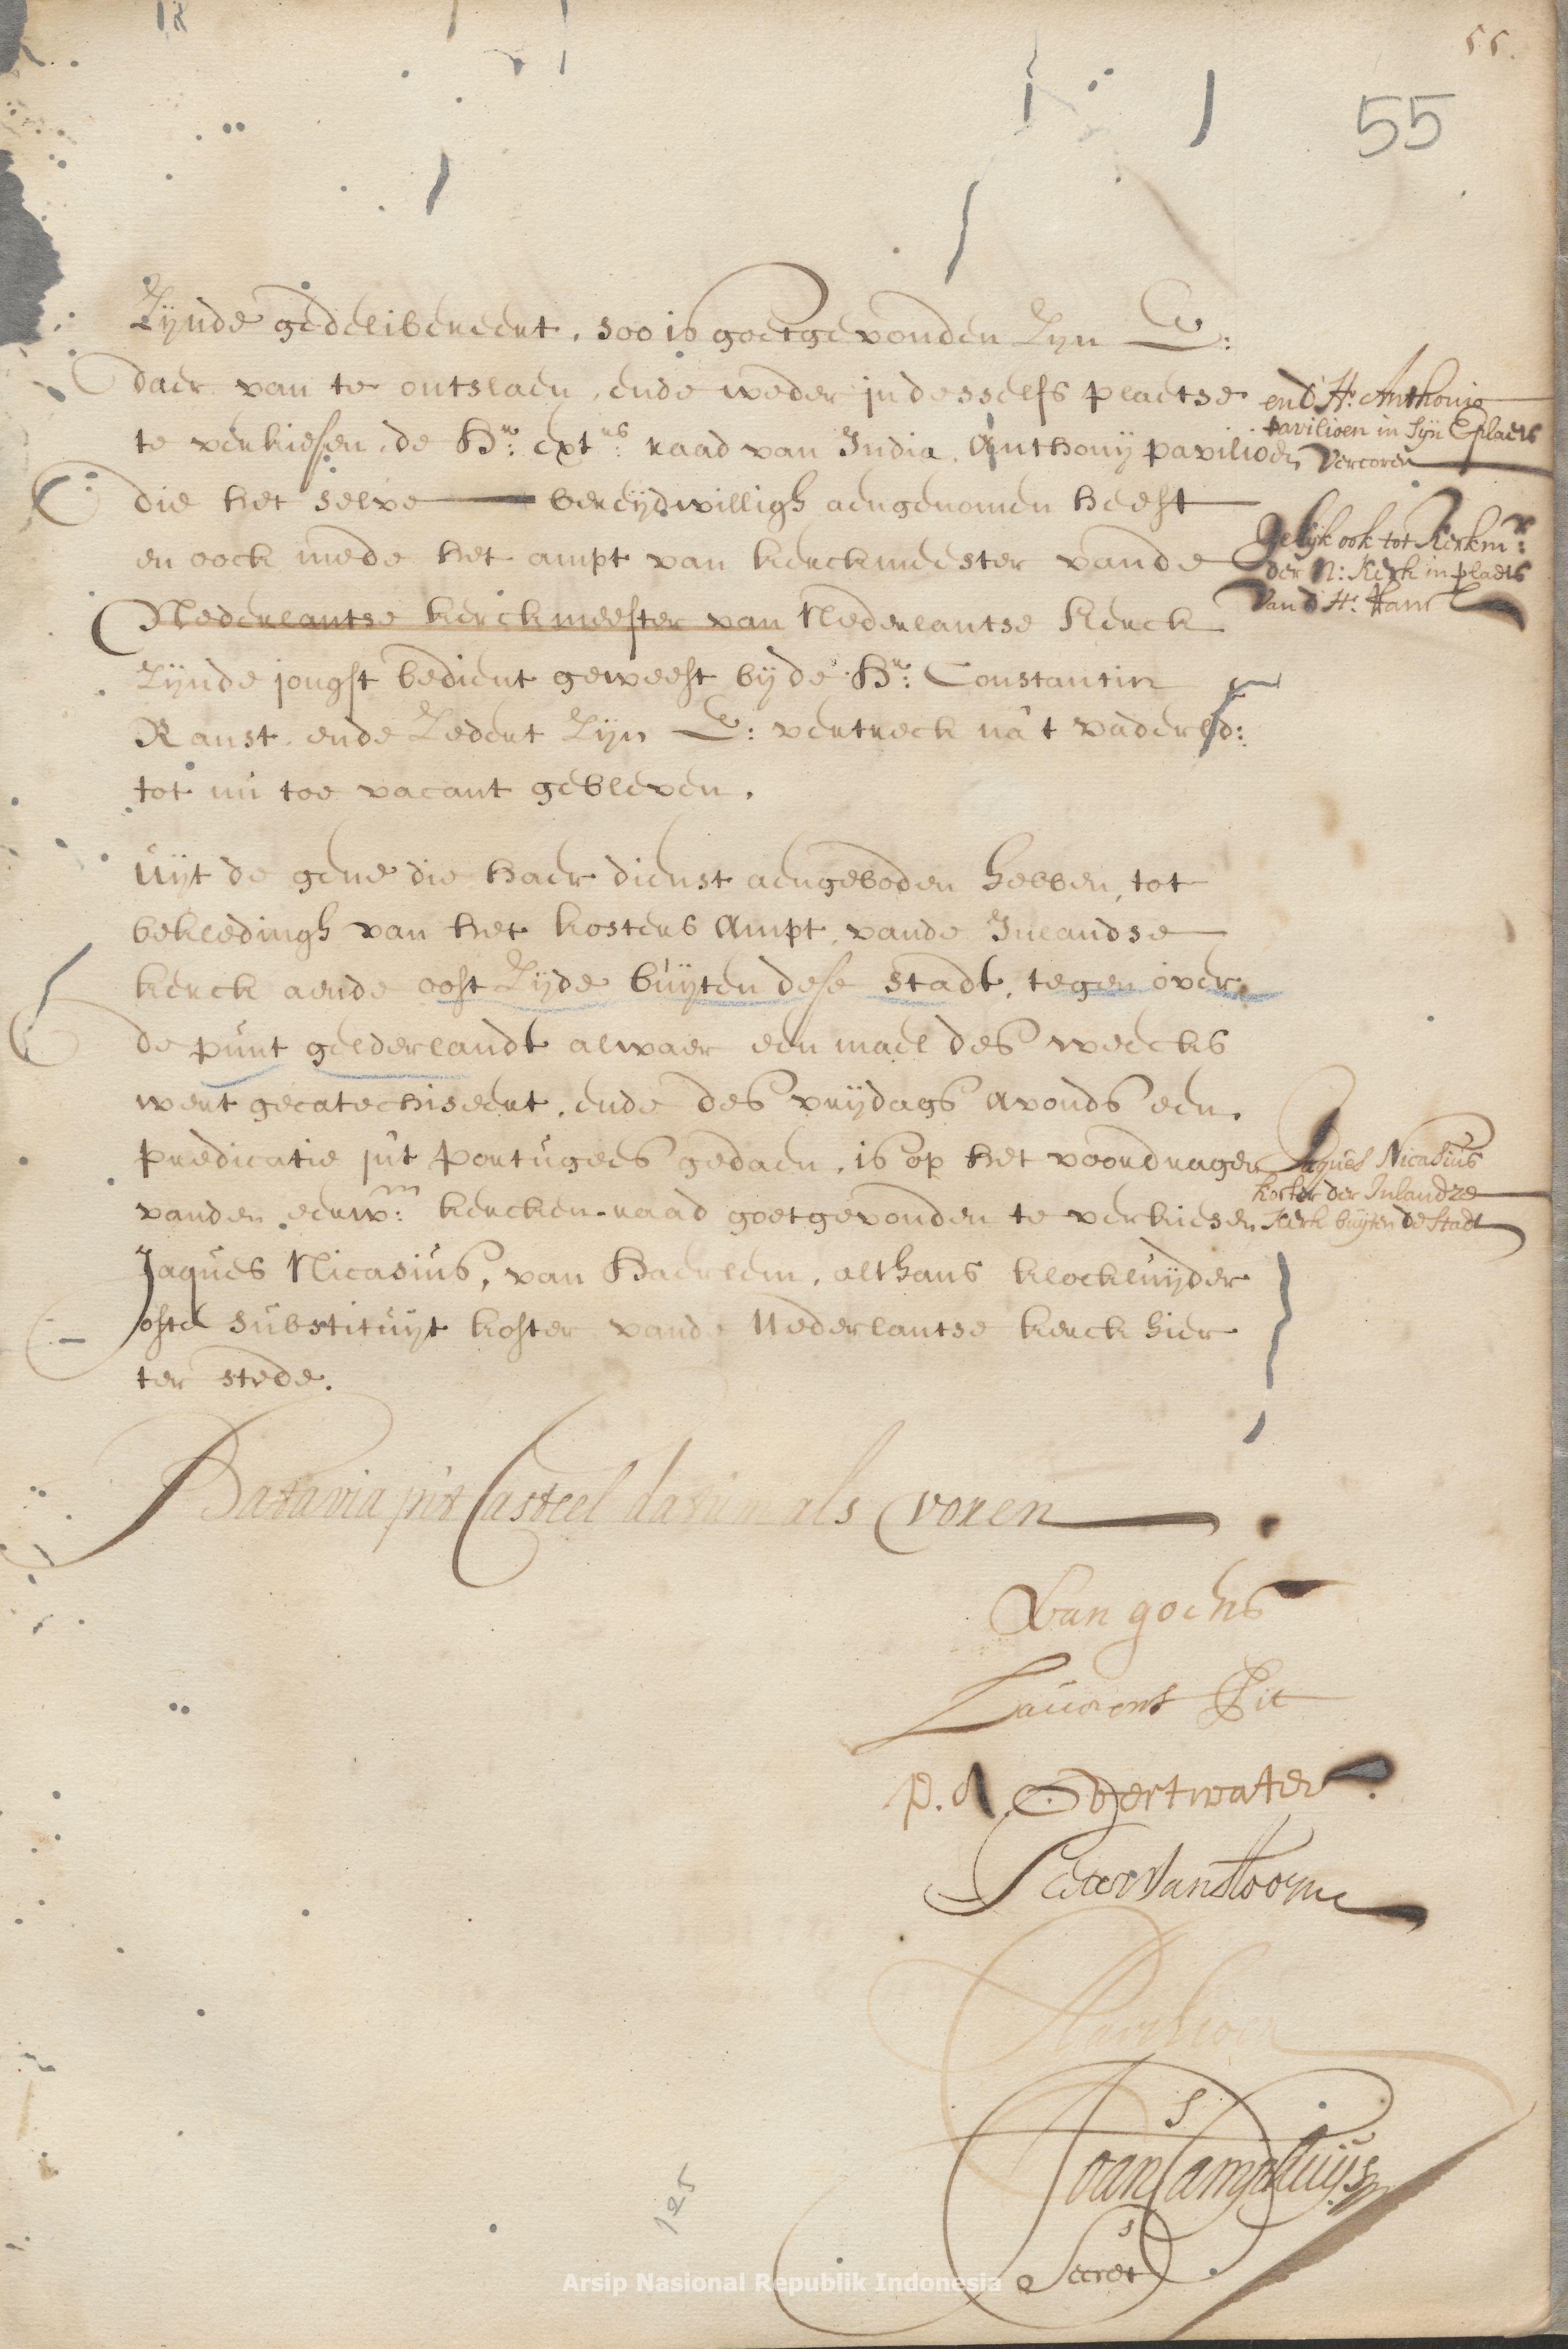 55.
55
Zijnde gedelibereert, soo is goetgevonden Zijn E:
daer van te ontslaen, ende weder in desselfs plaetse
te verkiesen, de Hr: extrs: raad van India, Anthonij pavilioen
die het selve bereijdwilligh aengenomen heeft
en oock mede het ampt van kerckmeester vande
Nederlantse kerckmeester van Nederlantse Kerck
Zijnde jongst bedient geweest bij de Hr: Constantin
Ranst, ende Zedert Zijn E: vertreck na't vaderld:
tot nu toe vacant gebleven.
end' Hr. Anthonio
pavilioen in Sijn E plaets
Vercoren
Gelijk ook tot Kerkmr:
der N: Kerk in plaets
Van d' Hr. Ranst
Uijt de gene die haer dienst aengeboden hebben, tot
bekledingh van het kosters Ampt, vande Inlandse
kerck aende oost Zijde buijten dese stadt, tegen over
de punt gelderlandt alwaer een mael des weecks
wert gecatechiseert, ende des vrijdags avonds een
predicatie in't portugees gedaen, is op het voordragen
vanden eerwn: kercken-raad goetgevonden te verkiesen
Jaques Nicasius, van Haerlem, althans klockluijder
ofte substituijt koster vande Nederlantse kerck hier
ter stede.
Jaques Nicasius
koster der Inlandze
Kerk buijten de Stadt
Batavia in't Casteel datum als voren
Van goens
Laurens Pit
P. A. Overtwater
Pieter Van Hoorn
Joan Camphuijs
Secrets
125
Arsip Nasional Republik Indonesia